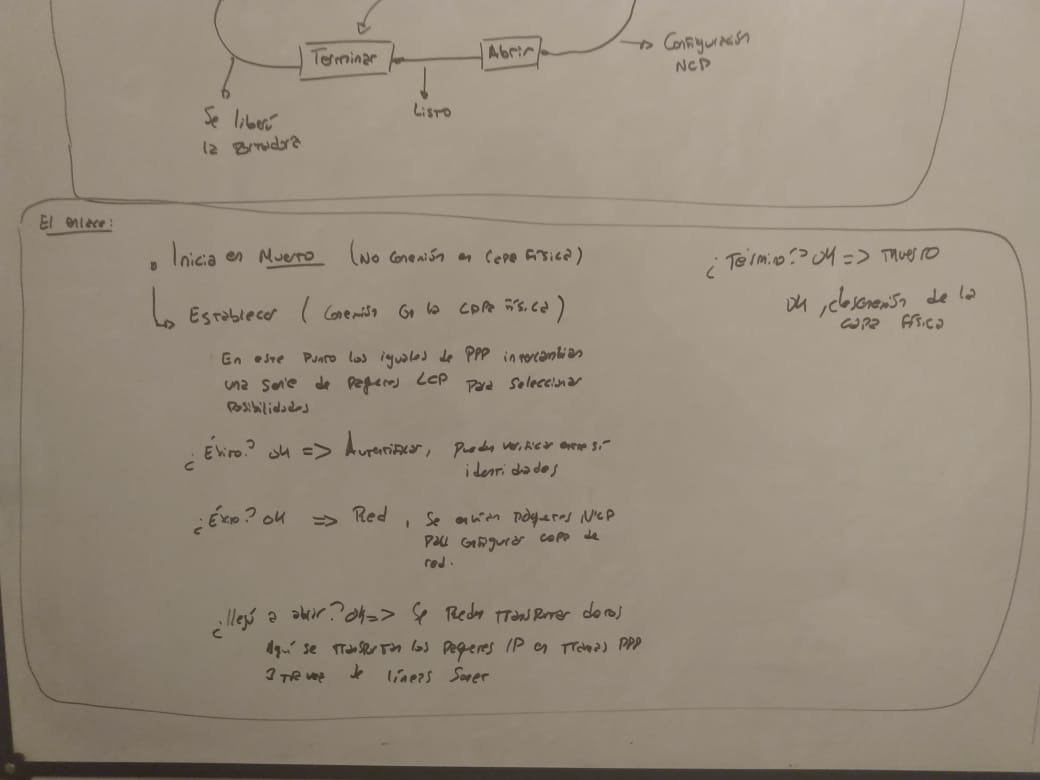 Terminar
Abrir
Configuración
NCP
Listo
Se liberó
la portadora
El enlace:
Inicia en Muerto (No Conexión en Capa Física)
Establecer (Conexión en la capa física)
En este punto los iguales de PPP intercambian
una serie de paquetes LCP para seleccionar
posibilidades
¿Éxito? ok => Autentificar, pueden verificar entre sí
identidades
¿Éxito? ok => Red, Se envían paquetes NCP
para configurar capa de
red.
¿llegó a abrir? ok => Se Pueden transferir datos
Aquí se transportan los paquetes IP en tramas PPP
a través de líneas Sonet
¿Término? ok => muerto
ok, desconexión de la
capa física